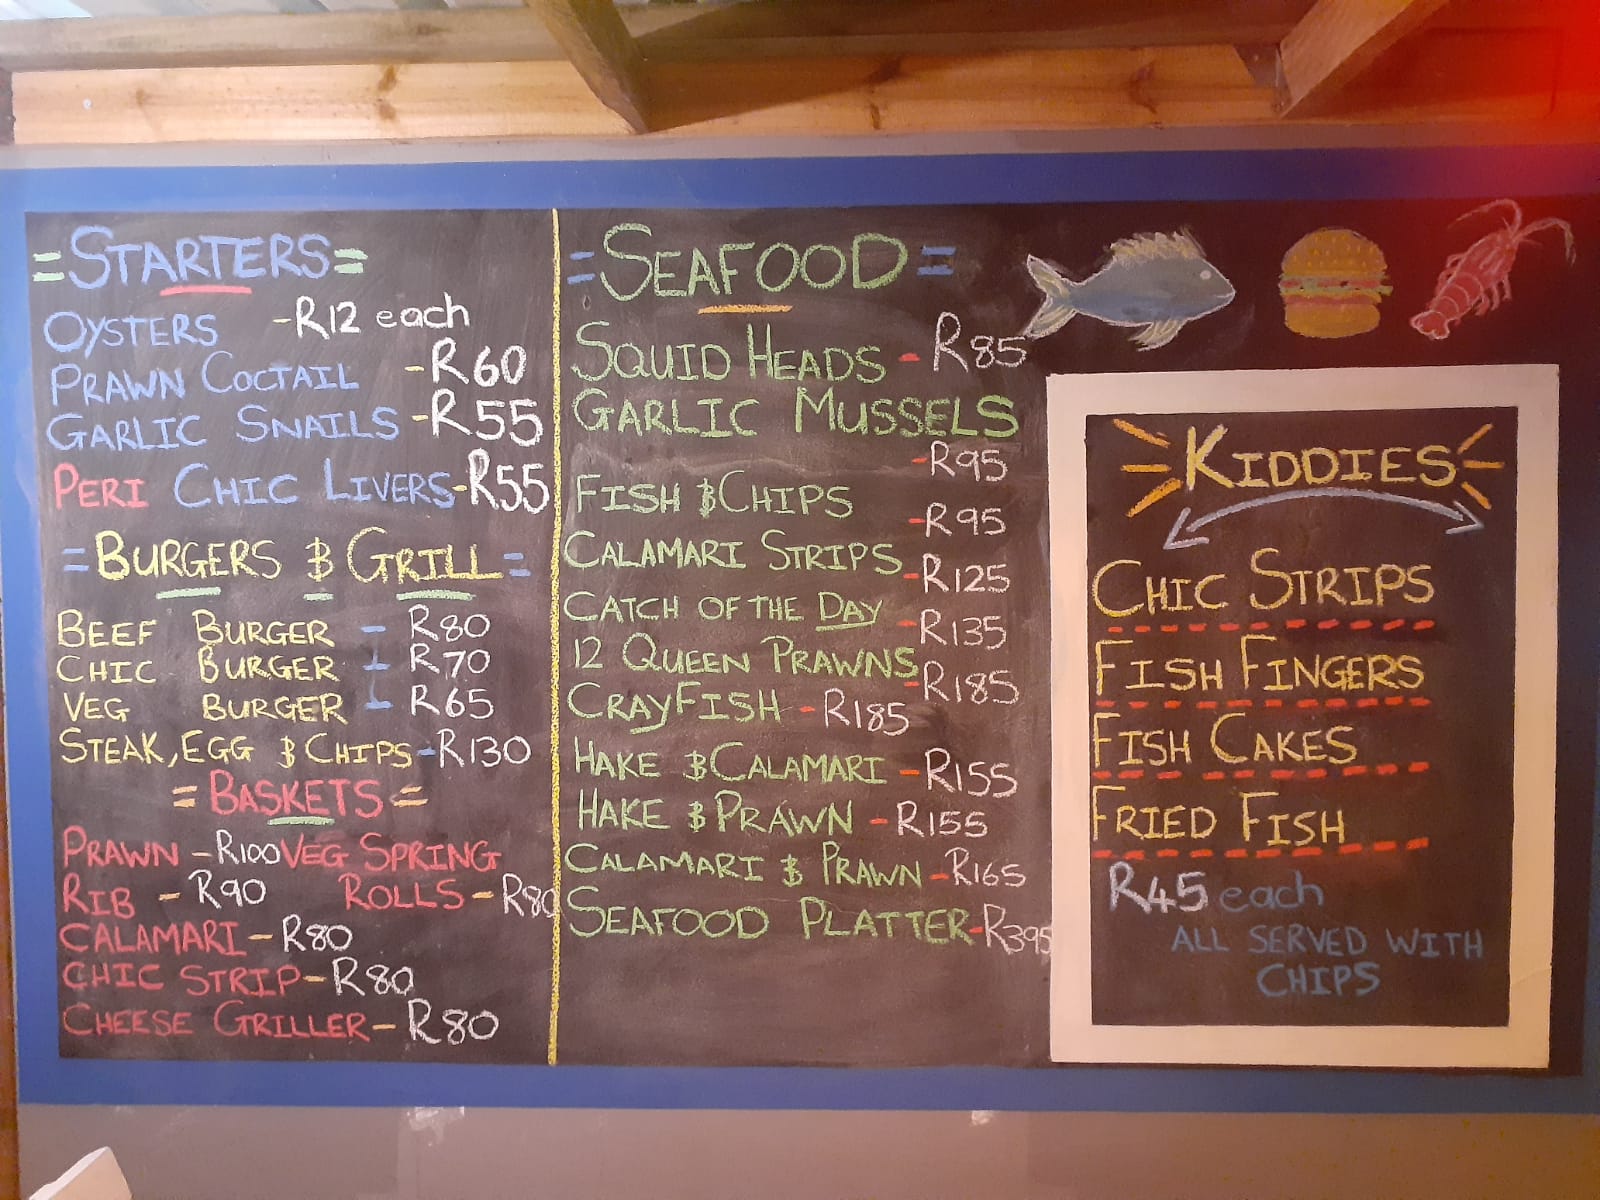 = STARTERS =
OYSTERS - R12 each
PRAWN COCTAIL - R60
GARLIC SNAILS - R55
PERI CHIC LIVERS - R55
= BURGERS & GRILL =
BEEF BURGER - R80
CHIC BURGER - R70
VEG BURGER - R65
STEAK, EGG & CHIPS - R130
= BASKETS =
PRAWN - R100 VEG SPRING
RIB - R90 ROLLS - R80
CALAMARI - R80
CHIC STRIP - R80
CHEESE GRILLER - R80
= SEAFOOD =
SQUID HEADS - R85
GARLIC MUSSELS
- R95
FISH & CHIPS
- R95
CALAMARI STRIPS
- R125
CATCH OF THE DAY
- R135
12 QUEEN PRAWNS
- R185
CRAYFISH - R185
HAKE & CALAMARI - R155
HAKE & PRAWN - R155
CALAMARI & PRAWN - R165
SEAFOOD PLATTER - R395
KIDDIES
CHIC STRIPS
FISH FINGERS
FISH CAKES
FRIED FISH
R45 each
ALL SERVED WITH
CHIPS